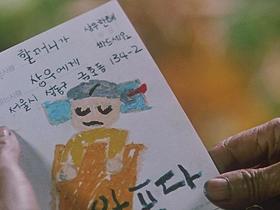 할머니가
상우한테
상우에게
서울시 성동구 금호동 134-2
아프다